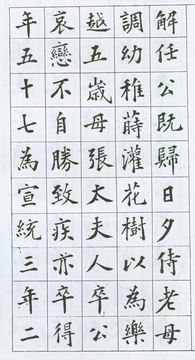 解任公既歸日夕侍老母
調幼稚蒔灌花樹以為樂
越五歲母張太夫人卒公
哀戀不自勝致疾亦卒得
年五十七為宣統三年二